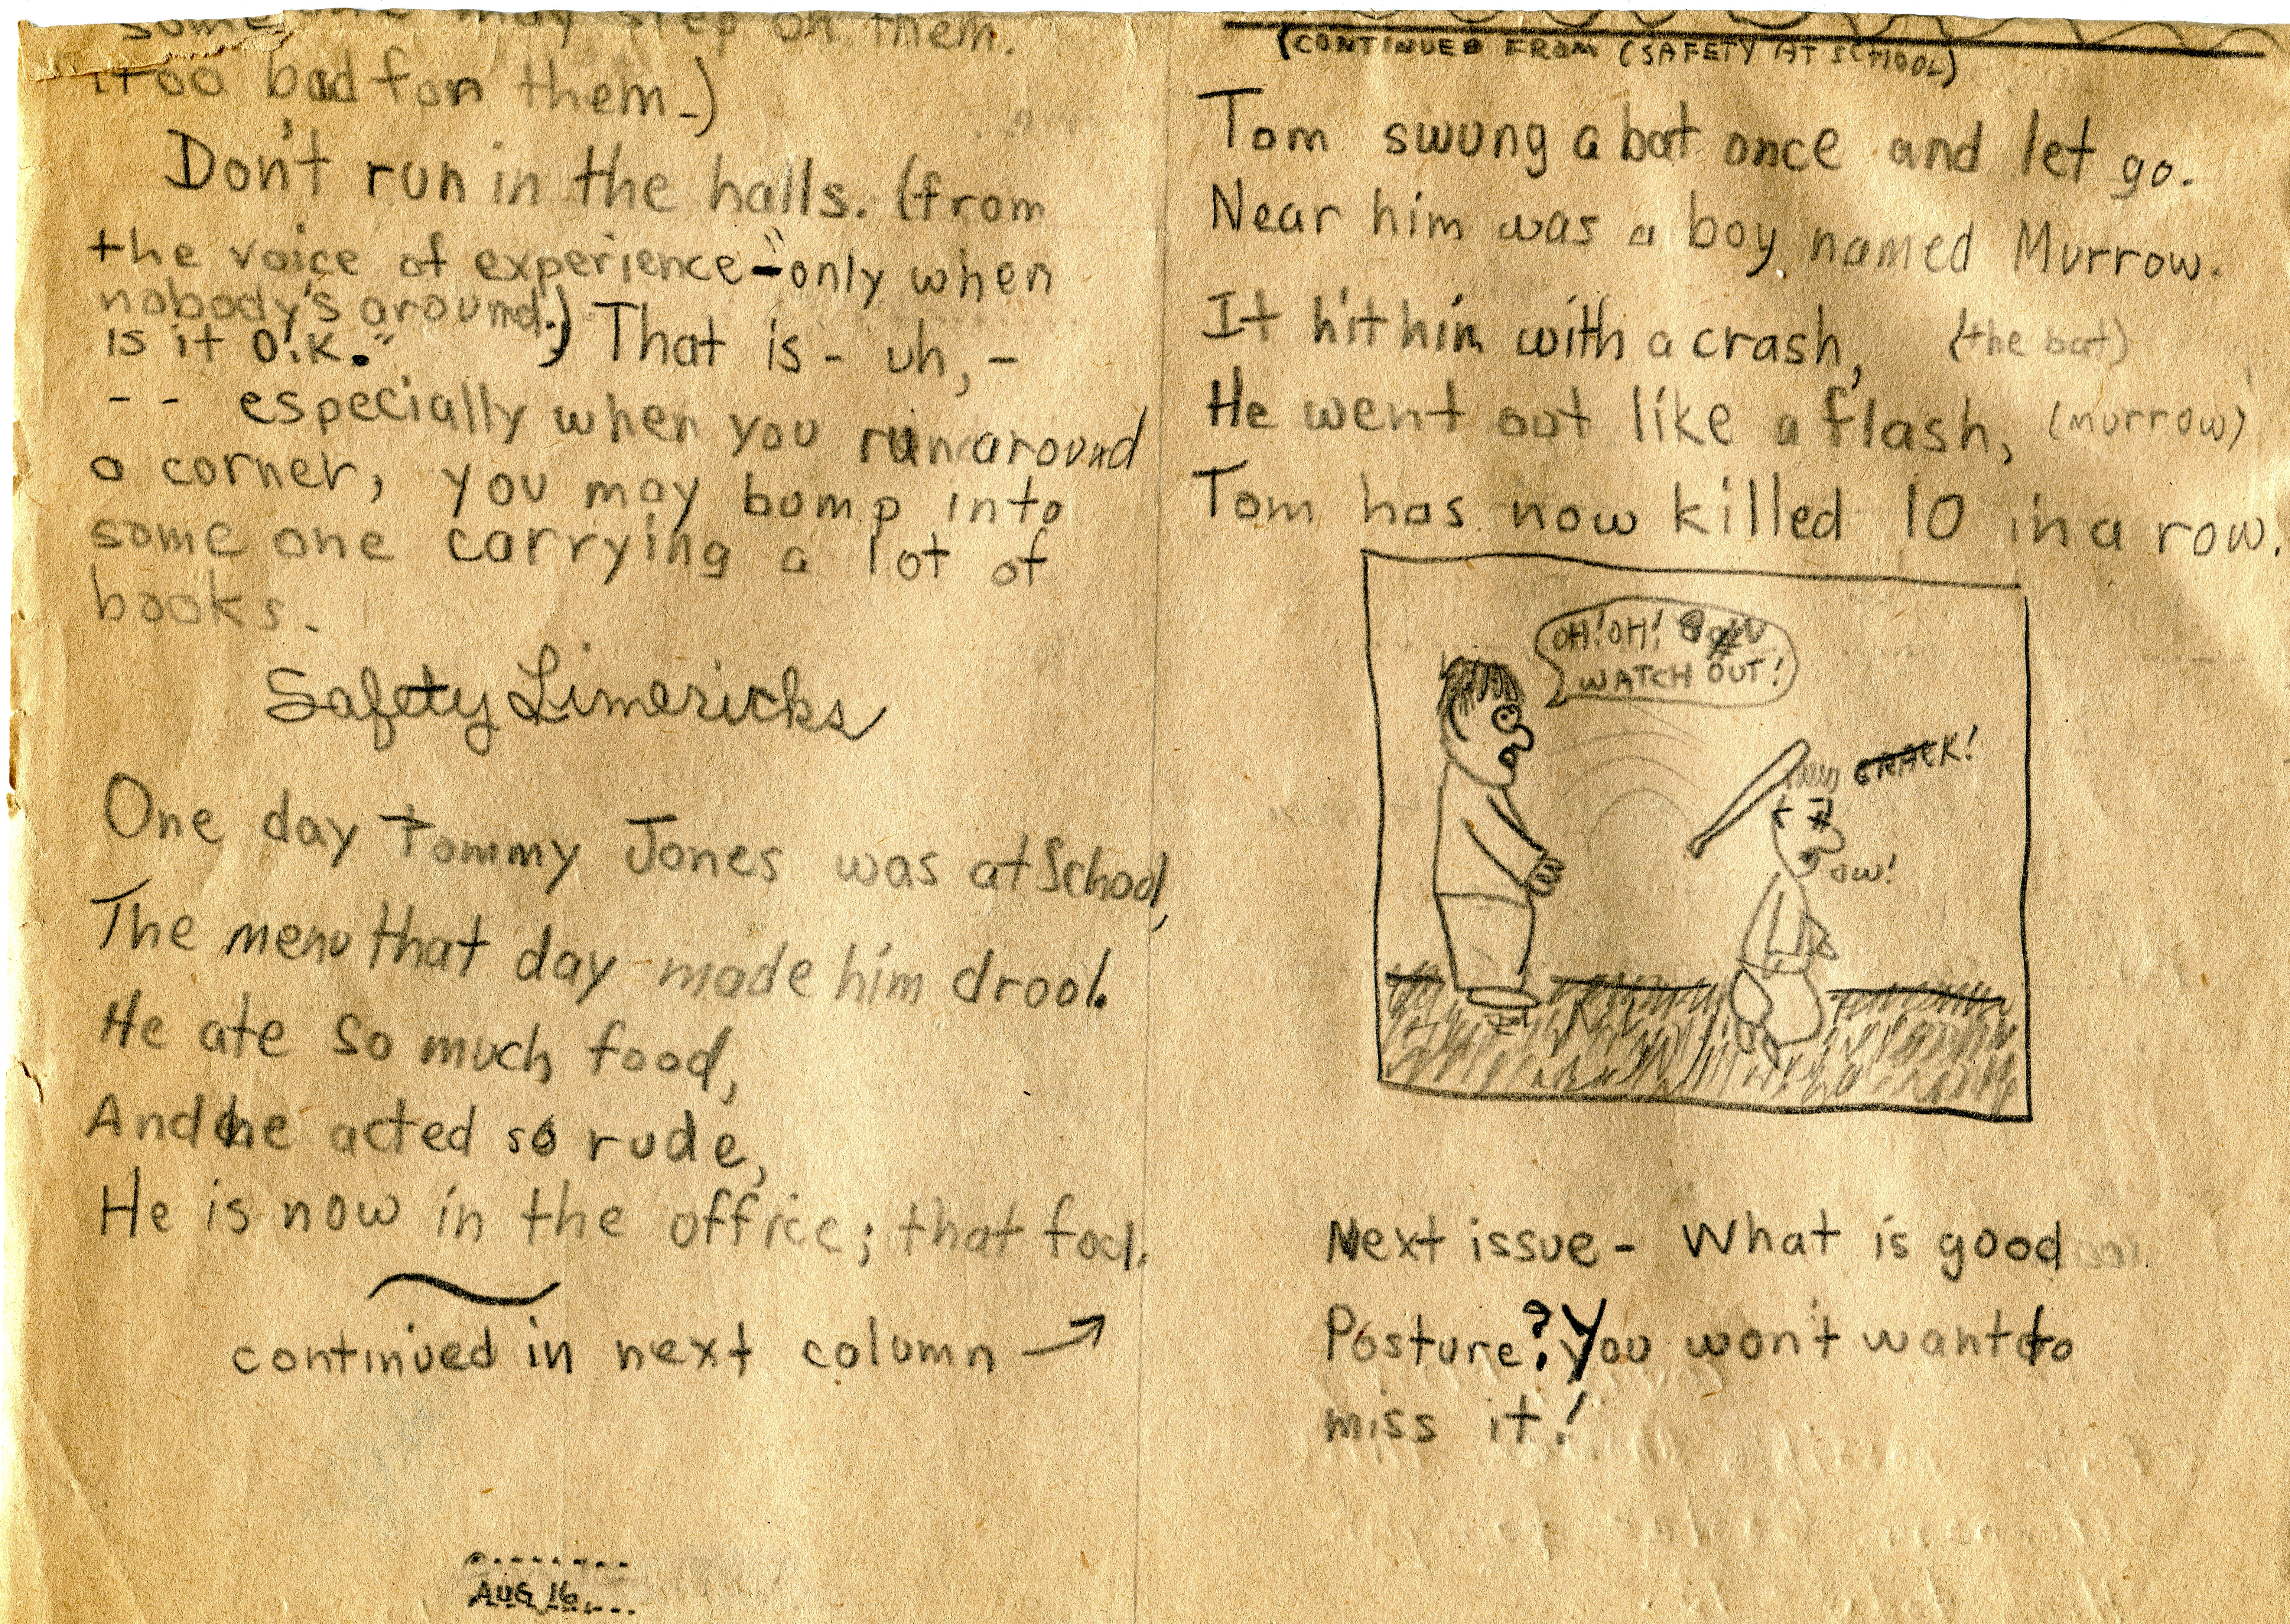 someone may step on them.
(Too bad for them.)
Don't run in the halls. (from
the voice of experience-"only when
nobody's around.)
is it O.K."
That is - uh, -
-- especially when you run around
a corner, you may bump into
some one carrying a lot of
books.
Safety Limericks
One day Tommy Jones was at School,
The menu that day made him drool.
He ate so much food,
And he acted so rude,
He is now in the office; that fool.
continued in next column →
AUG 16
(CONTINUED FROM (SAFETY AT SCHOOL)
Tom swung a bat once and let go.
Near him was a boy named Murrow.
It hit him with a crash, (the bat)
He went out like a flash, (murrow)
Tom has now killed 10 in a row.
OH! OH!
WATCH OUT!
CRACK!
OW!
Next issue - What is good
Posture? You won't want to
miss it!